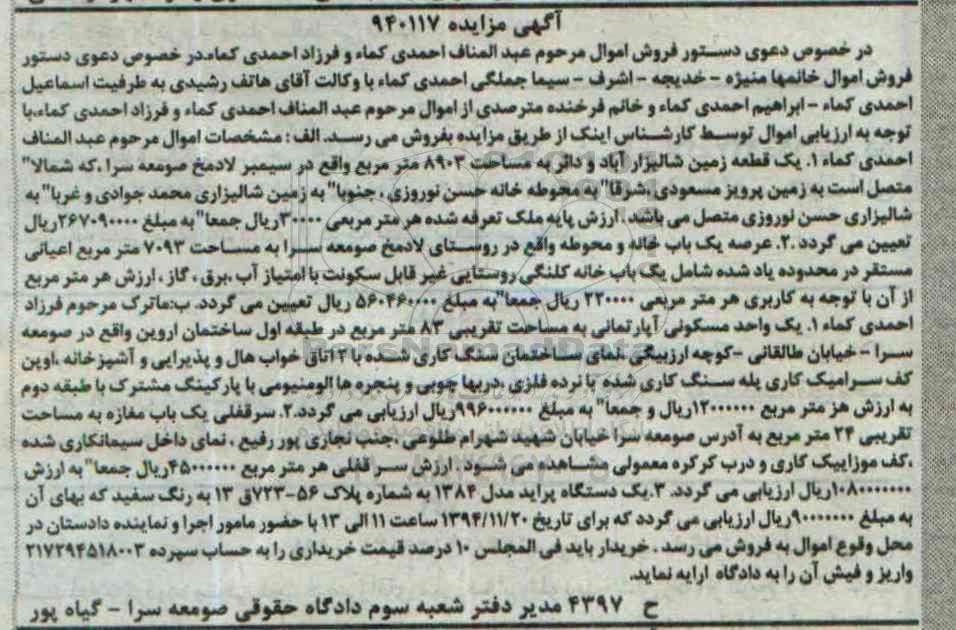 آگهی مزایده ۹۴۰۱۱۷
در خصوص دعوی دستور فروش اموال مرحوم عبد المناف احمدی کماء و فرزاد احمدی کماء.در خصوص دعوی دستور
فروش اموال خانمها منیژه - خدیجه - اشرف - سیما جملگی احمدی کماء با وکالت آقای هاتف رشیدی به طرفیت اسماعیل
احمدی کماء - ابراهیم احمدی کماء و خانم فرخنده مترصدی از اموال مرحوم عبد المناف احمدی کماء و فرزاد احمدی کماء.با
توجه به ارزیابی اموال توسط کارشناس اینک از طریق مزایده بفروش می رسد. الف : مشخصات اموال مرحوم عبد المناف
احمدی کماء ۱. یک قطعه زمین شالیزار آباد و دائر به مساحت ۸۹۰۳ متر مربع واقع در سیمبر لادمخ صومعه سرا .که شمالا"
متصل است به زمین پرویز مسعودی .شرقا" به محوطه خانه حسن نوروزی . جنوبا" به زمین شالیزاری محمد جوادی و غربا" به
شالیزاری حسن نوروزی متصل می باشد . ارزش پایه ملک تعرفه شده هر متر مربعی ۳۰۰۰۰ریال جمعا" به مبلغ ۲۶۷۰۹۰۰۰۰ریال
تعیین می گردد .۲. عرصه یک باب خانه و محوطه واقع در روستای لادمخ صومعه سرا به مساحت ۷۰۹۳ متر مربع اعیانی
مستقر در محدوده یاد شده شامل یک باب خانه کلنگی روستایی غیر قابل سکونت با امتیاز آب .برق . گاز . ارزش هر متر مربع
از آن با توجه به کاربری هر متر مربعی ۲۲۰۰۰۰ ریال جمعا"به مبلغ ۵۶۰۴۶۰۰۰۰ ریال تعیین می گردد. ب:ماترک مرحوم فرزاد
احمدی کماء ۱. یک واحد مسکونی آپارتمانی به مساحت تقریبی ۸۳ متر مربع در طبقه اول ساختمان اروین واقع در صومعه
سرا - خیابان طالقانی -کوچه ارزبیگی .نمای ساختمان سنگ کاری شده با ۲ اتاق خواب هال و پذیرایی و آشپزخانه .اوپن
کف سرامیک کاری پله سنگ کاری شده با نرده فلزی .دربها چوبی و پنجره ها الومنیومی با پارکینگ مشترک با طبقه دوم
به ارزش هز متر مربع ۱۲۰۰۰۰۰۰ریال و جمعا" به مبلغ ۹۹۶۰۰۰۰۰۰ریال ارزیابی می گردد.۲. سرقفلی یک باب مغازه به مساحت
تقریبی ۲۴ متر مربع به آدرس صومعه سرا خیابان شهید شهرام طلوعی .جنب نجاری پور رفیع . نمای داخل سیمانکاری شده
.کف موزاییک کاری و درب کرکره معمولی مشاهده می شود . ارزش سر قفلی هر متر مربع ۴۵۰۰۰۰۰۰ریال جمعا" به ارزش
۱۰۸۰۰۰۰۰۰۰ریال ارزیابی می گردد. ۳.یک دستگاه پراید مدل ۱۳۸۴ به شماره پلاک ۵۶-۷۲۳ق ۱۳ به رنگ سفید که بهای آن
به مبلغ ۹۰۰۰۰۰۰۰ریال ارزیابی می گردد که برای تاریخ ۱۳۹۴/۱۱/۲۰ ساعت ۱۱ الی ۱۳ با حضور مامور اجرا و نماینده دادستان در
محل وقوع اموال به فروش می رسد . خریدار باید فی المجلس ۱۰ درصد قیمت خریداری را به حساب سپرده ۲۱۷۲۹۴۵۱۸۰۰۳
واریز و فیش آن را به دادگاه ارایه نماید.
ح ۴۳۹۷ مدیر دفتر شعبه سوم دادگاه حقوقی صومعه سرا - گیاه پور
ParsNamadData